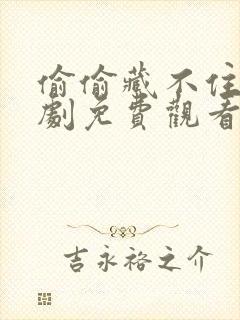 偷偷藏不住
劇免費觀看
吉永裕之介